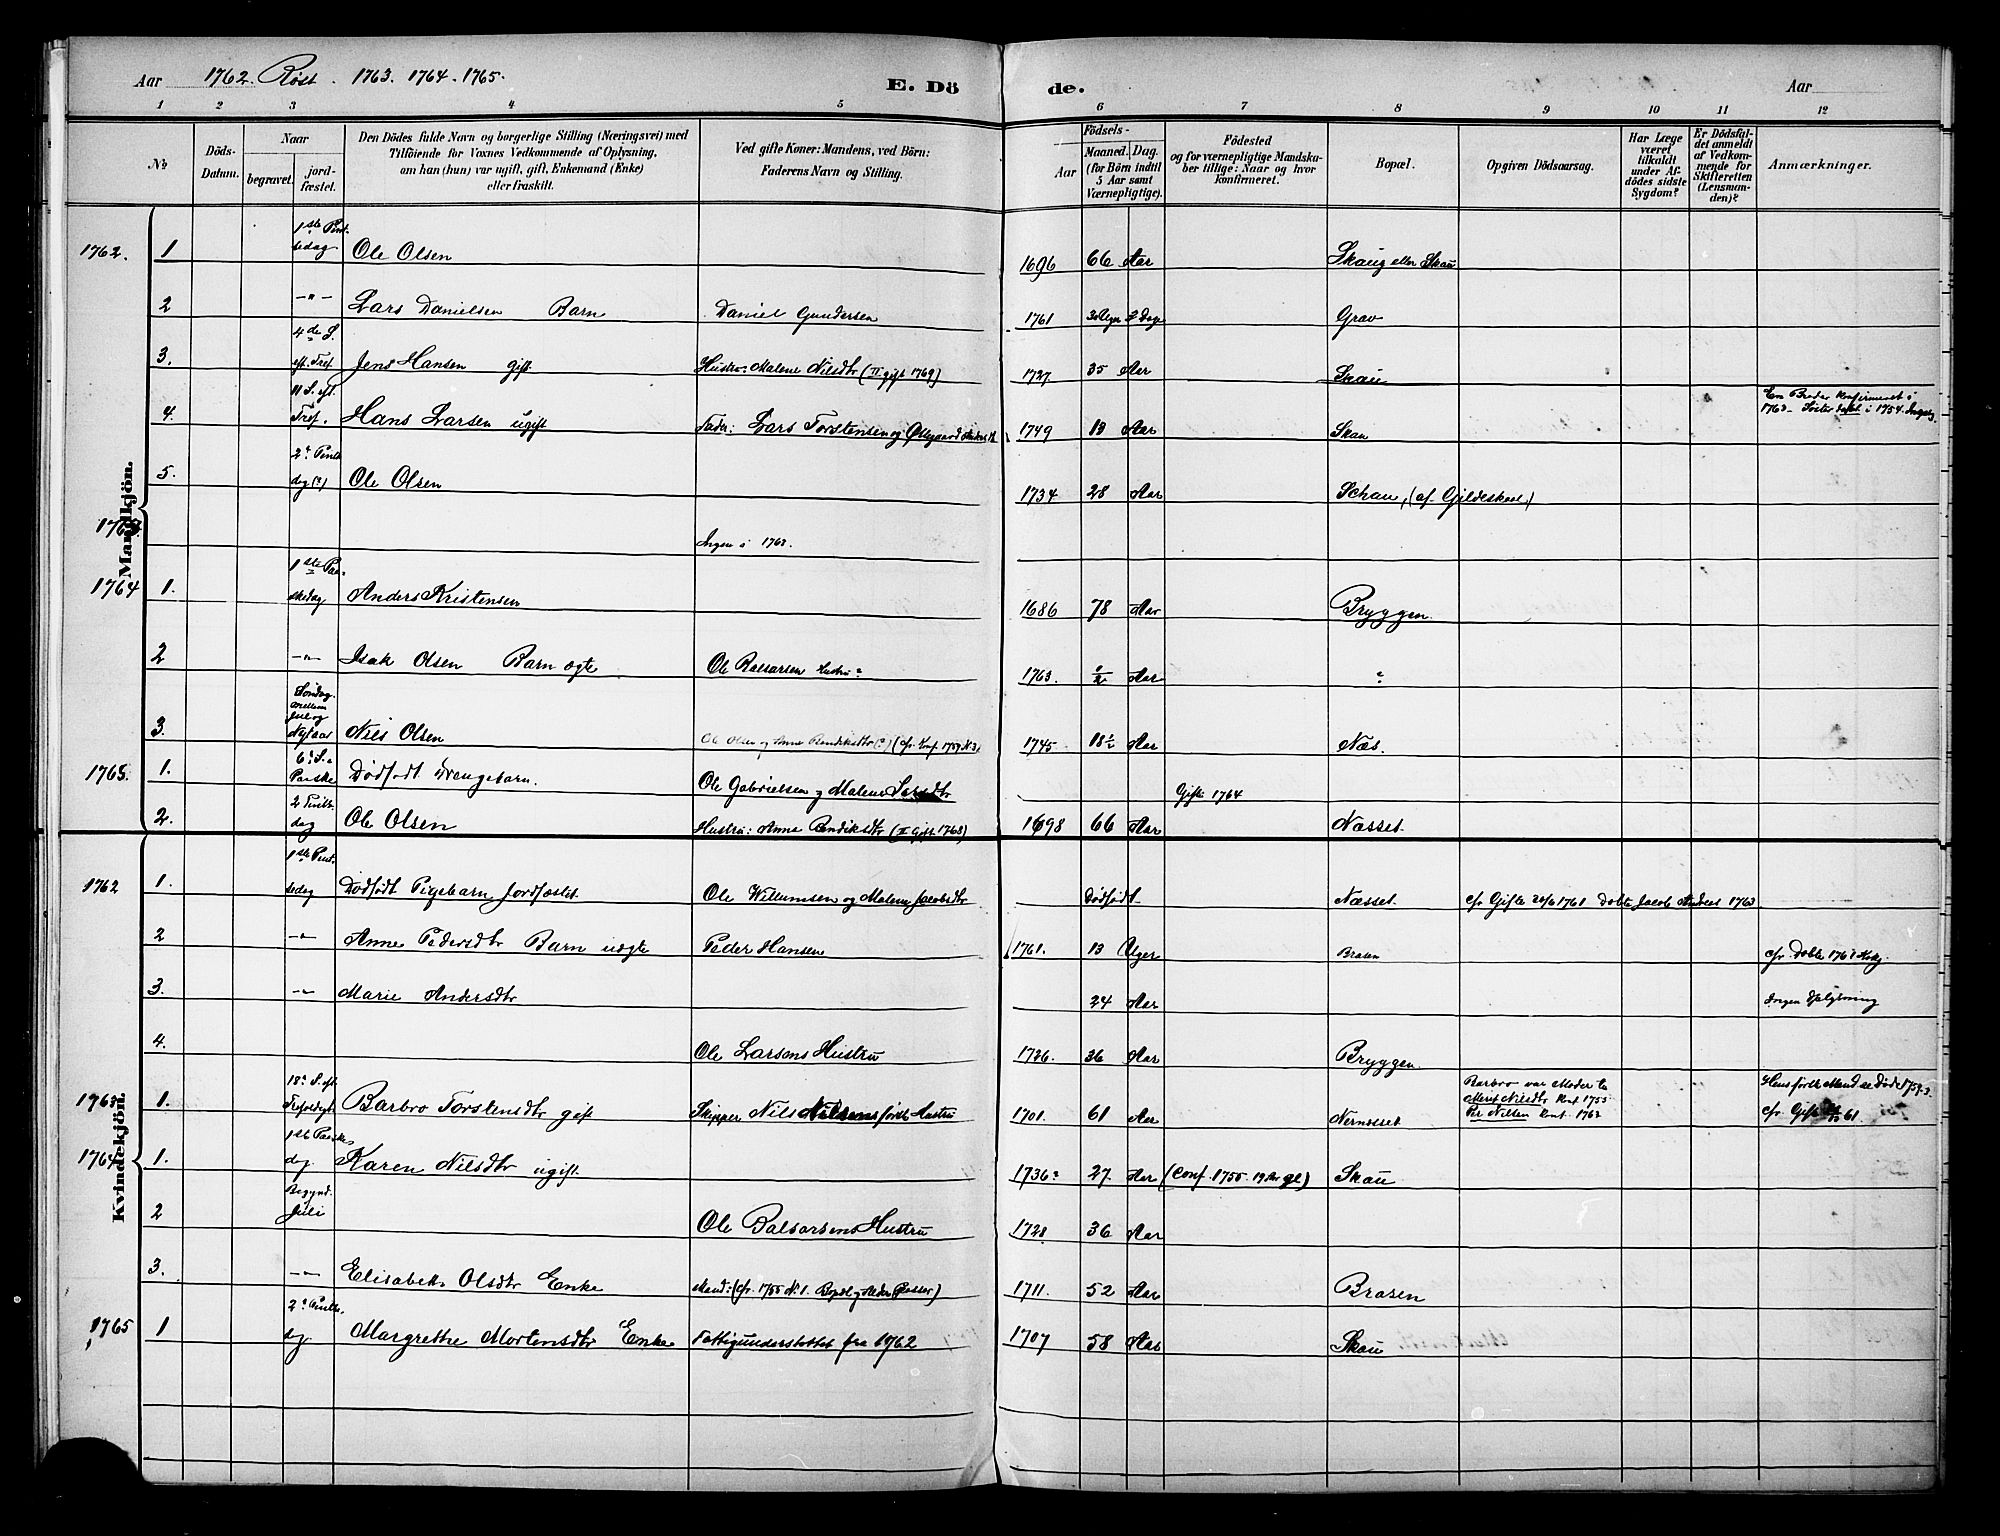 Aar 1762. Røst. 1763. 1764. 1765. E. Dö de. Aar
1 2 3 4 5 6 7 8 9 10 11 12
No
Döds-Datum.
Naar
begravet.
jord-fæstet.
Den Dödes fulde Navn og borgerlige Stilling (Næringsvei) med
Tilföiende for Voxnes Vedkommende af Oplysning,
om han (hun) var ugift, gift, Enkemand (Enke)
eller fraskilt.
Ved gifte Koner: Mandens, ved Börn:
Faderens Navn og Stilling.
Födsels-
Aar
Maaned. Dag.
(for Börn indtil
5 Aar samt
Værnepligtige).
Födested
og for værnepligtige Mandska-
ber tillige: Naar og hvor
konfirmeret.
Bopæl.
Opgiven Dödsaarsag.
Har Læge
været
tilkaldt
under Af-
dödes sidste
Sygdom?
Er Dödsfal-
det anmeldt
af Vedkom-
mende for
Skifteretten
(Lensman-
den)?
Anmærkninger.
Mandkjön.
1762. 1 1ste Pintsedag Ole Olsen 1696 66 Aar Skaug eller Skau
2 -"- Lars Danielsen Barn Daniel Gundersen 1761 Grav
3. 4de S. eft. Tref. Jens Hansen gift Hustru: Malene Nilsdtr (II gift 1769) 1727 35 Aar Skau
4. 11 S. eft. Tref. Hans Larsen ugift Fader: Lars Torstensen og 1749 13 Aar Skau En Broder konfirmeret i
1763 - Søster døbt i 1754.
5. Ole Olsen 1734 28 Aar Schau, (af Gildeskaal)
1763. Ingen i 1763.
1764 1. 1ste Paaskedag Anders Kristensen 1686 78 Aar Bryggen.
2 -"- Isak Olsen Barn ægte Ole Balsarsen Hustru? 1763. 1/2 Aar ?
3. Søndag mellem Jul og Nytaar Nils Olsen Ole Olsen og Anne Bendiksdtr (?) (cfr. Konf. 1759 N. 3) 1745 18 1/2 Aar Næs.
1765. 1. 6. S. e. Paaske Dødfødt Drengebarn. Ole Gabrielsen og Malene Larsdtr Gifte 1764
2. 2 Pintsedag Ole Olsen Hustru: Anne Bendiksdtr (II Gift 1768) 1698 66 Aar Næsset.
Kvindekjön.
1762 1. 1ste Pintsedag Dødfødt Pigebarn Jordfæstet. Ole Willumsen og Malene Jacobsdtr Dødfødt Næsset cfr Gifte 20/6 1761 Døbte Jacob Andreas 1763
2 -"- Anne Pedersdtr Barn uægte Peder Hansen 1761. 13 Uger Brasen cfr. Døbte 1761
3. -"- Marie Andersdtr 24 Aar Ingen Oplysning
4. Ole Larsens Hustru 1726. 36 Aar Bryggen.
1763 1. 18. S. eft. Trefoldigh. Barbro Torstensdtr gift Skipper Nils Nilsens født Hustru 1701. 61 Aar Nernæsset Barbro var Moder til
Marit Nilsdtr Konf. 1755
Per Nilsen Konf. 1763
cfr Gifte 61.
1764 1. 1ste Paaskedag Karen Nilsdtr ugift. 1736? 27. Aar (Conf. 1755. 19 Aar gl) Skau
2 Begynd. Juli Ole Balsarsens Hustru 1728. 36 Aar
3. -"- Elisabeth Olsdtr Enke Mand: (cfr. 1755 N. 1. Bopæl og Alder Passer) 1711. 52 Aar Brasen
1765 1 2. Pintsedag Margrethe Mortensdtr Enke Fattigunderstøttet fra 1762 1707 58 Aar Skau